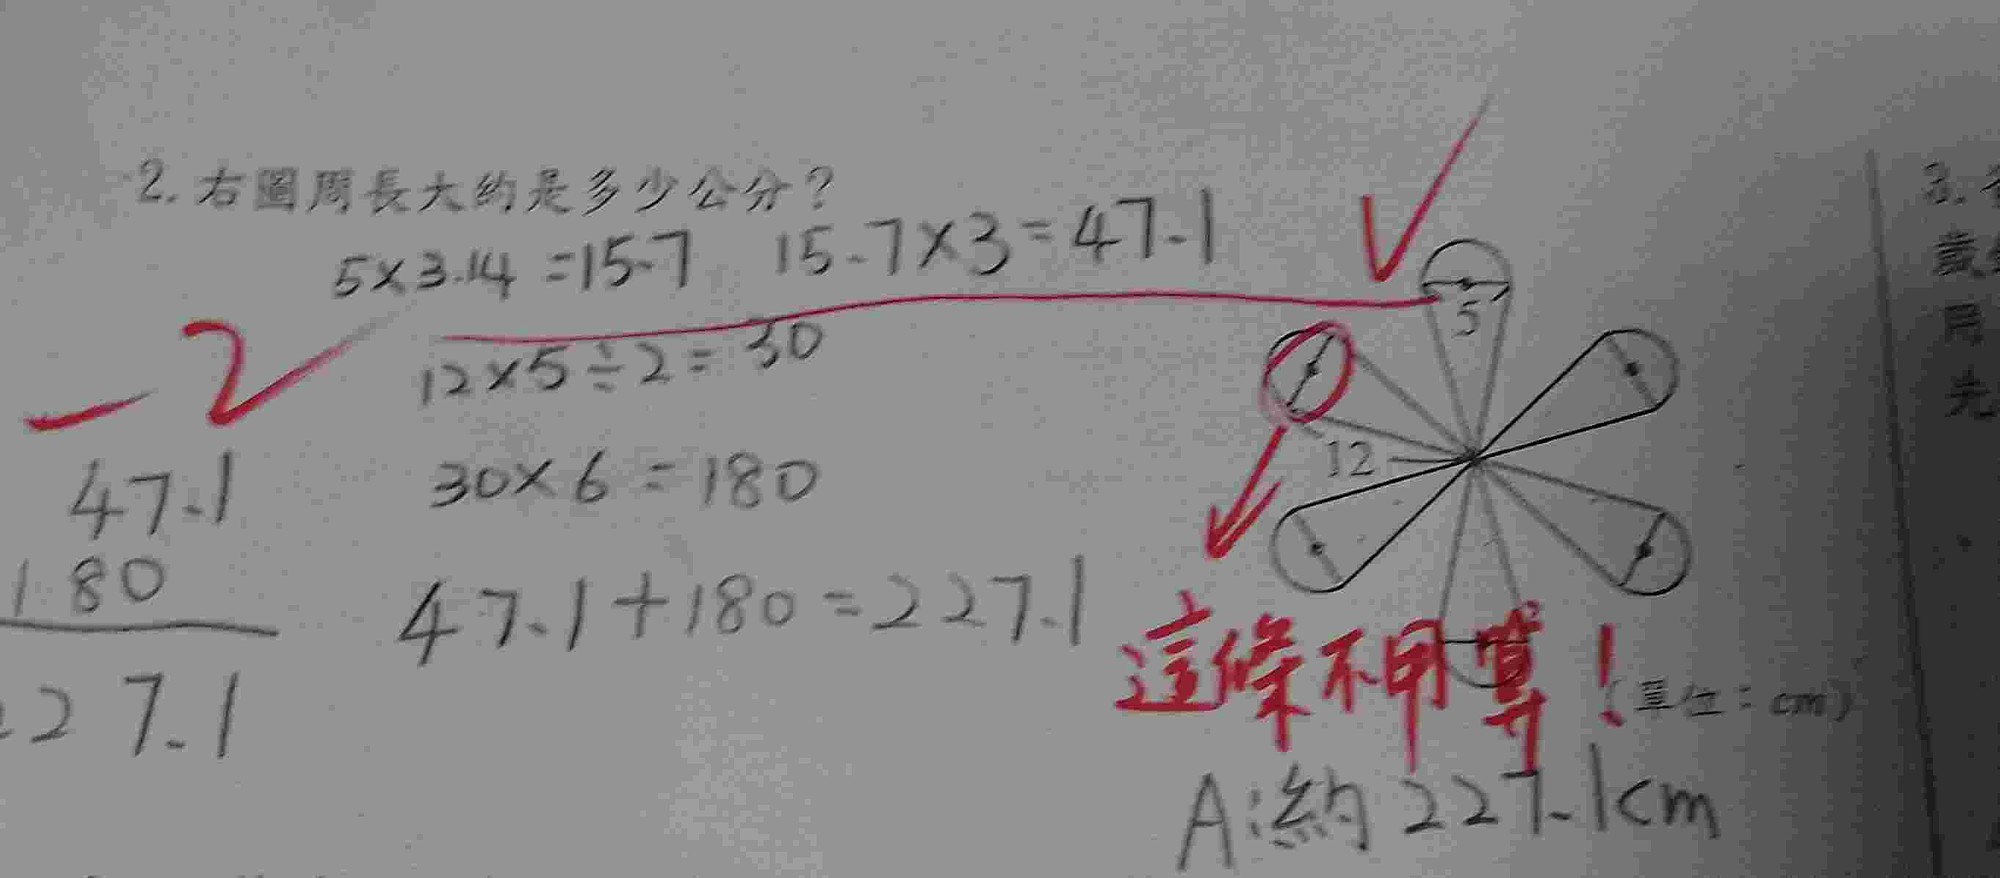 2. 右圖周長大約是多少公分?
5×3.14=15.7 15.7×3=47.1
12×5÷2=30
30×6=180
47.1+180=227.1
-2
47.1
180
227.1
5
12
這條不用算!
(單位:cm)
A:約227.1cm
3.